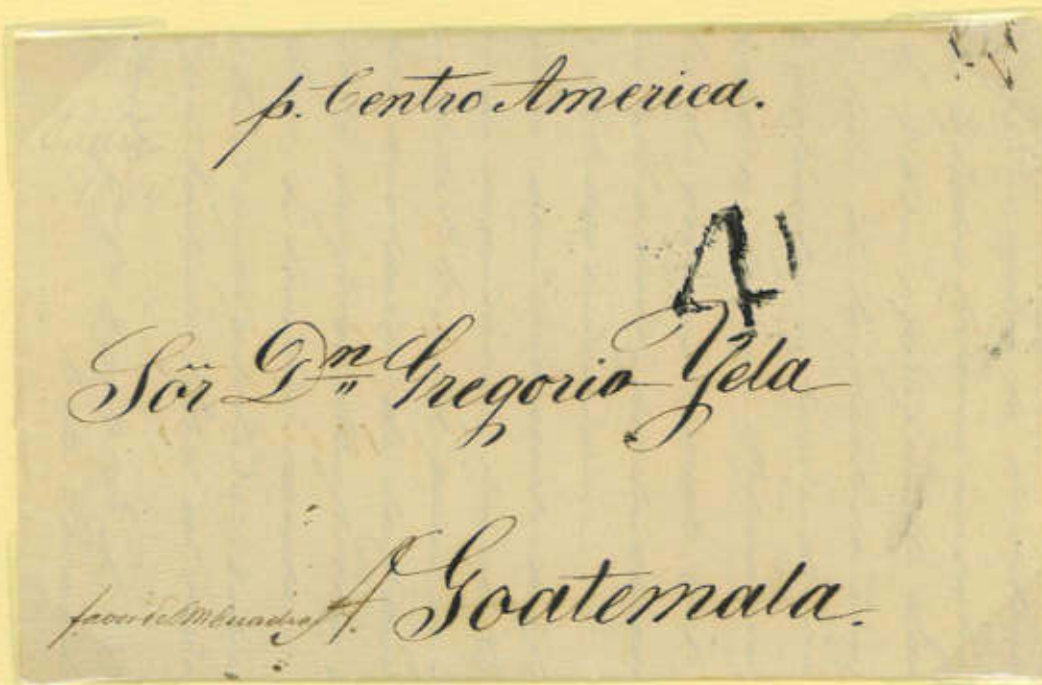 p. Centro America.
4
Sör Dn Gregorio Yela
favor de
A. Goatemala.